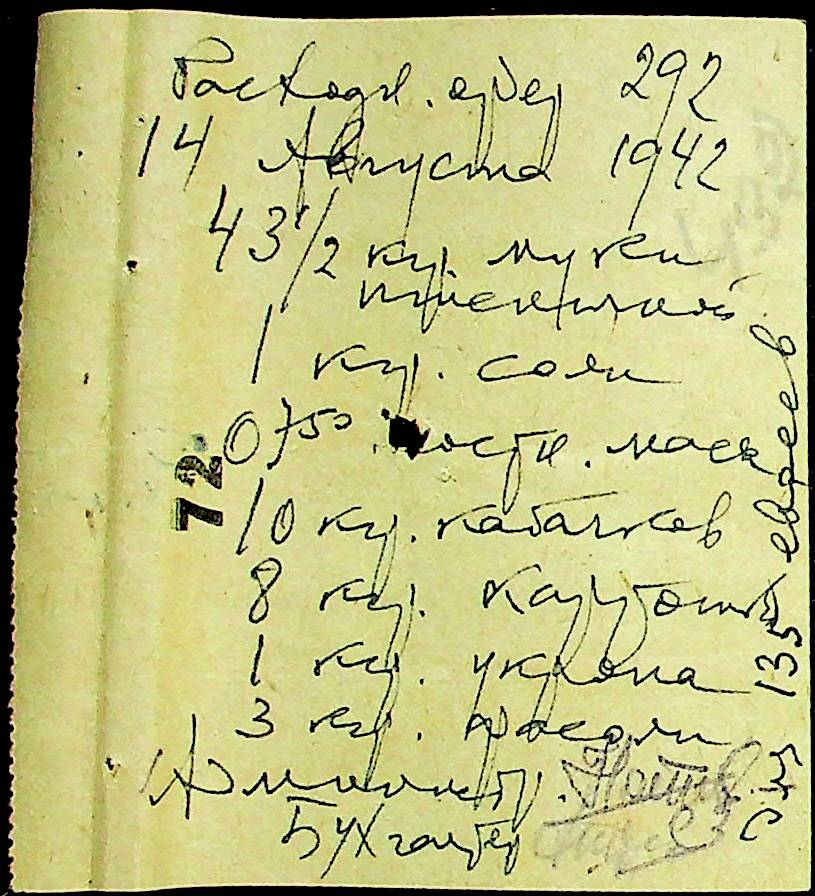 Расходн. ордер 292
14 Августа 1942
43 1/2 кгр. муки
пшеничной
1 кгр. соли
0,750 постн. масла
10 кгр. кабачков
8 кгр. картошки
1 кгр. укропа
3 кгр. фасоли
Администр.
Бухгалтер
для 135 евреев
72